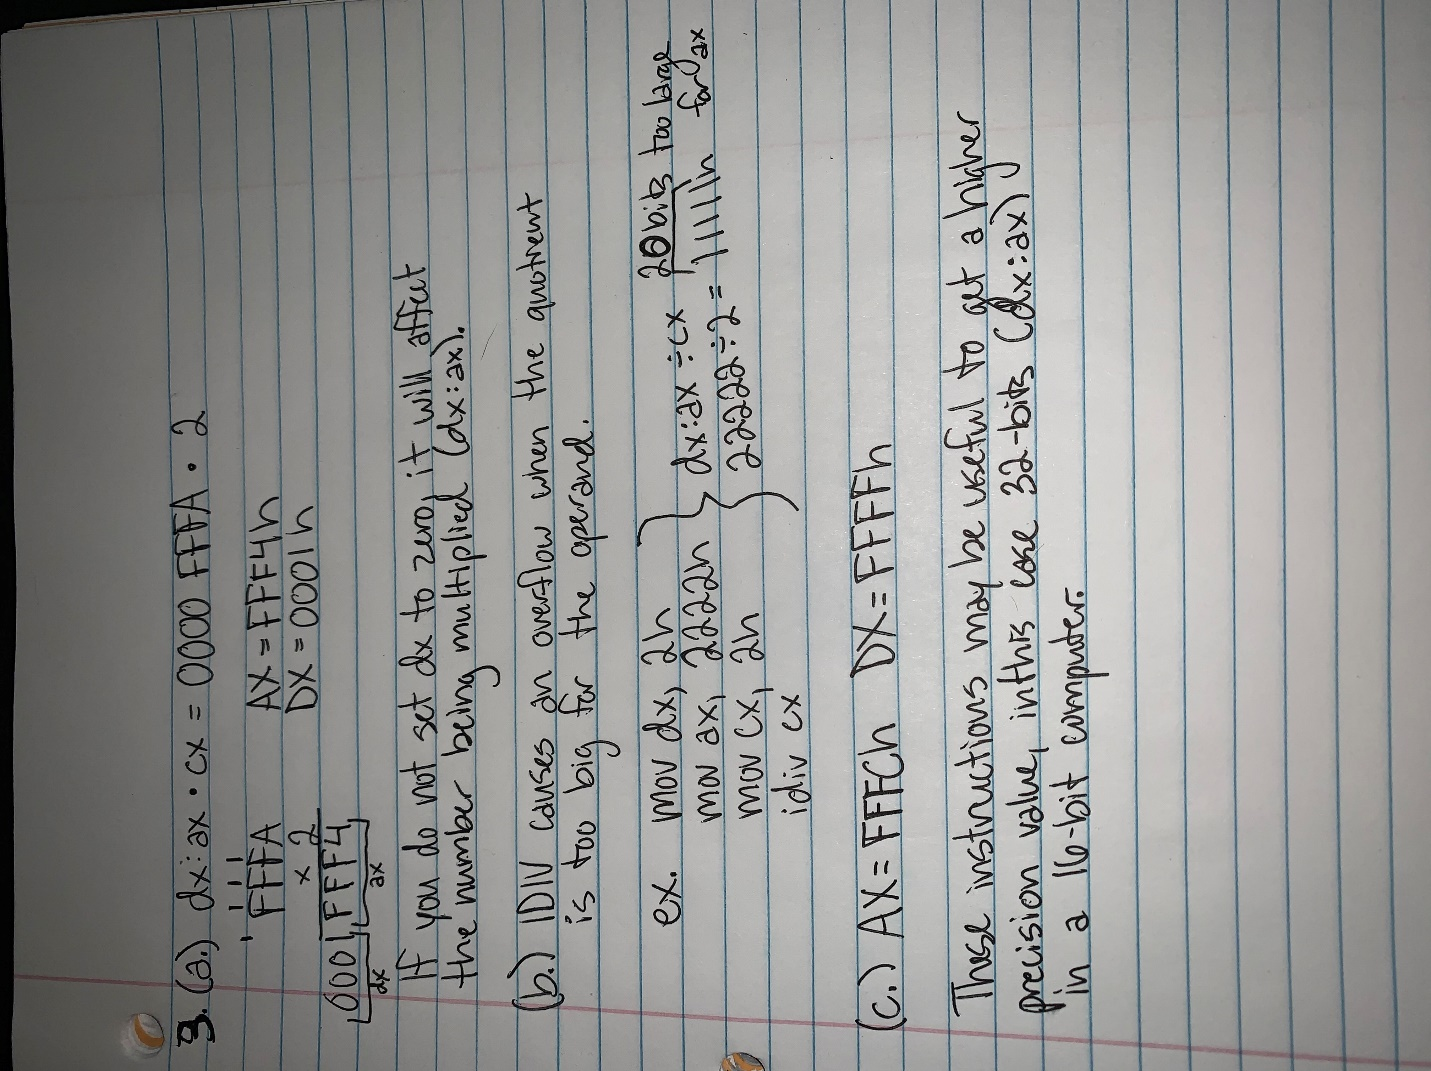 3. (a.) dx:ax · cx = 0000 FFFA · 2
1 1 1 1
FFFA AX = FFF4h
x 2 DX = 0001h
0001 FFF4
dx ax
If you do not set dx to zero, it will affect
the number being multiplied (dx:ax).
(b.) IDIV causes an overflow when the quotient
is too big for the operand.
ex. mov dx, 2h
mov ax, 2222h
mov cx, 2h
idiv cx
dx:ax ÷ cx
22222 ÷ 2 = 11111h
20 bits too large
for ax
(c.) AX = FFFCh DX = FFFFh
These instructions may be useful to get a higher
precision value, in this case 32-bits (dx:ax)
in a 16-bit computer.